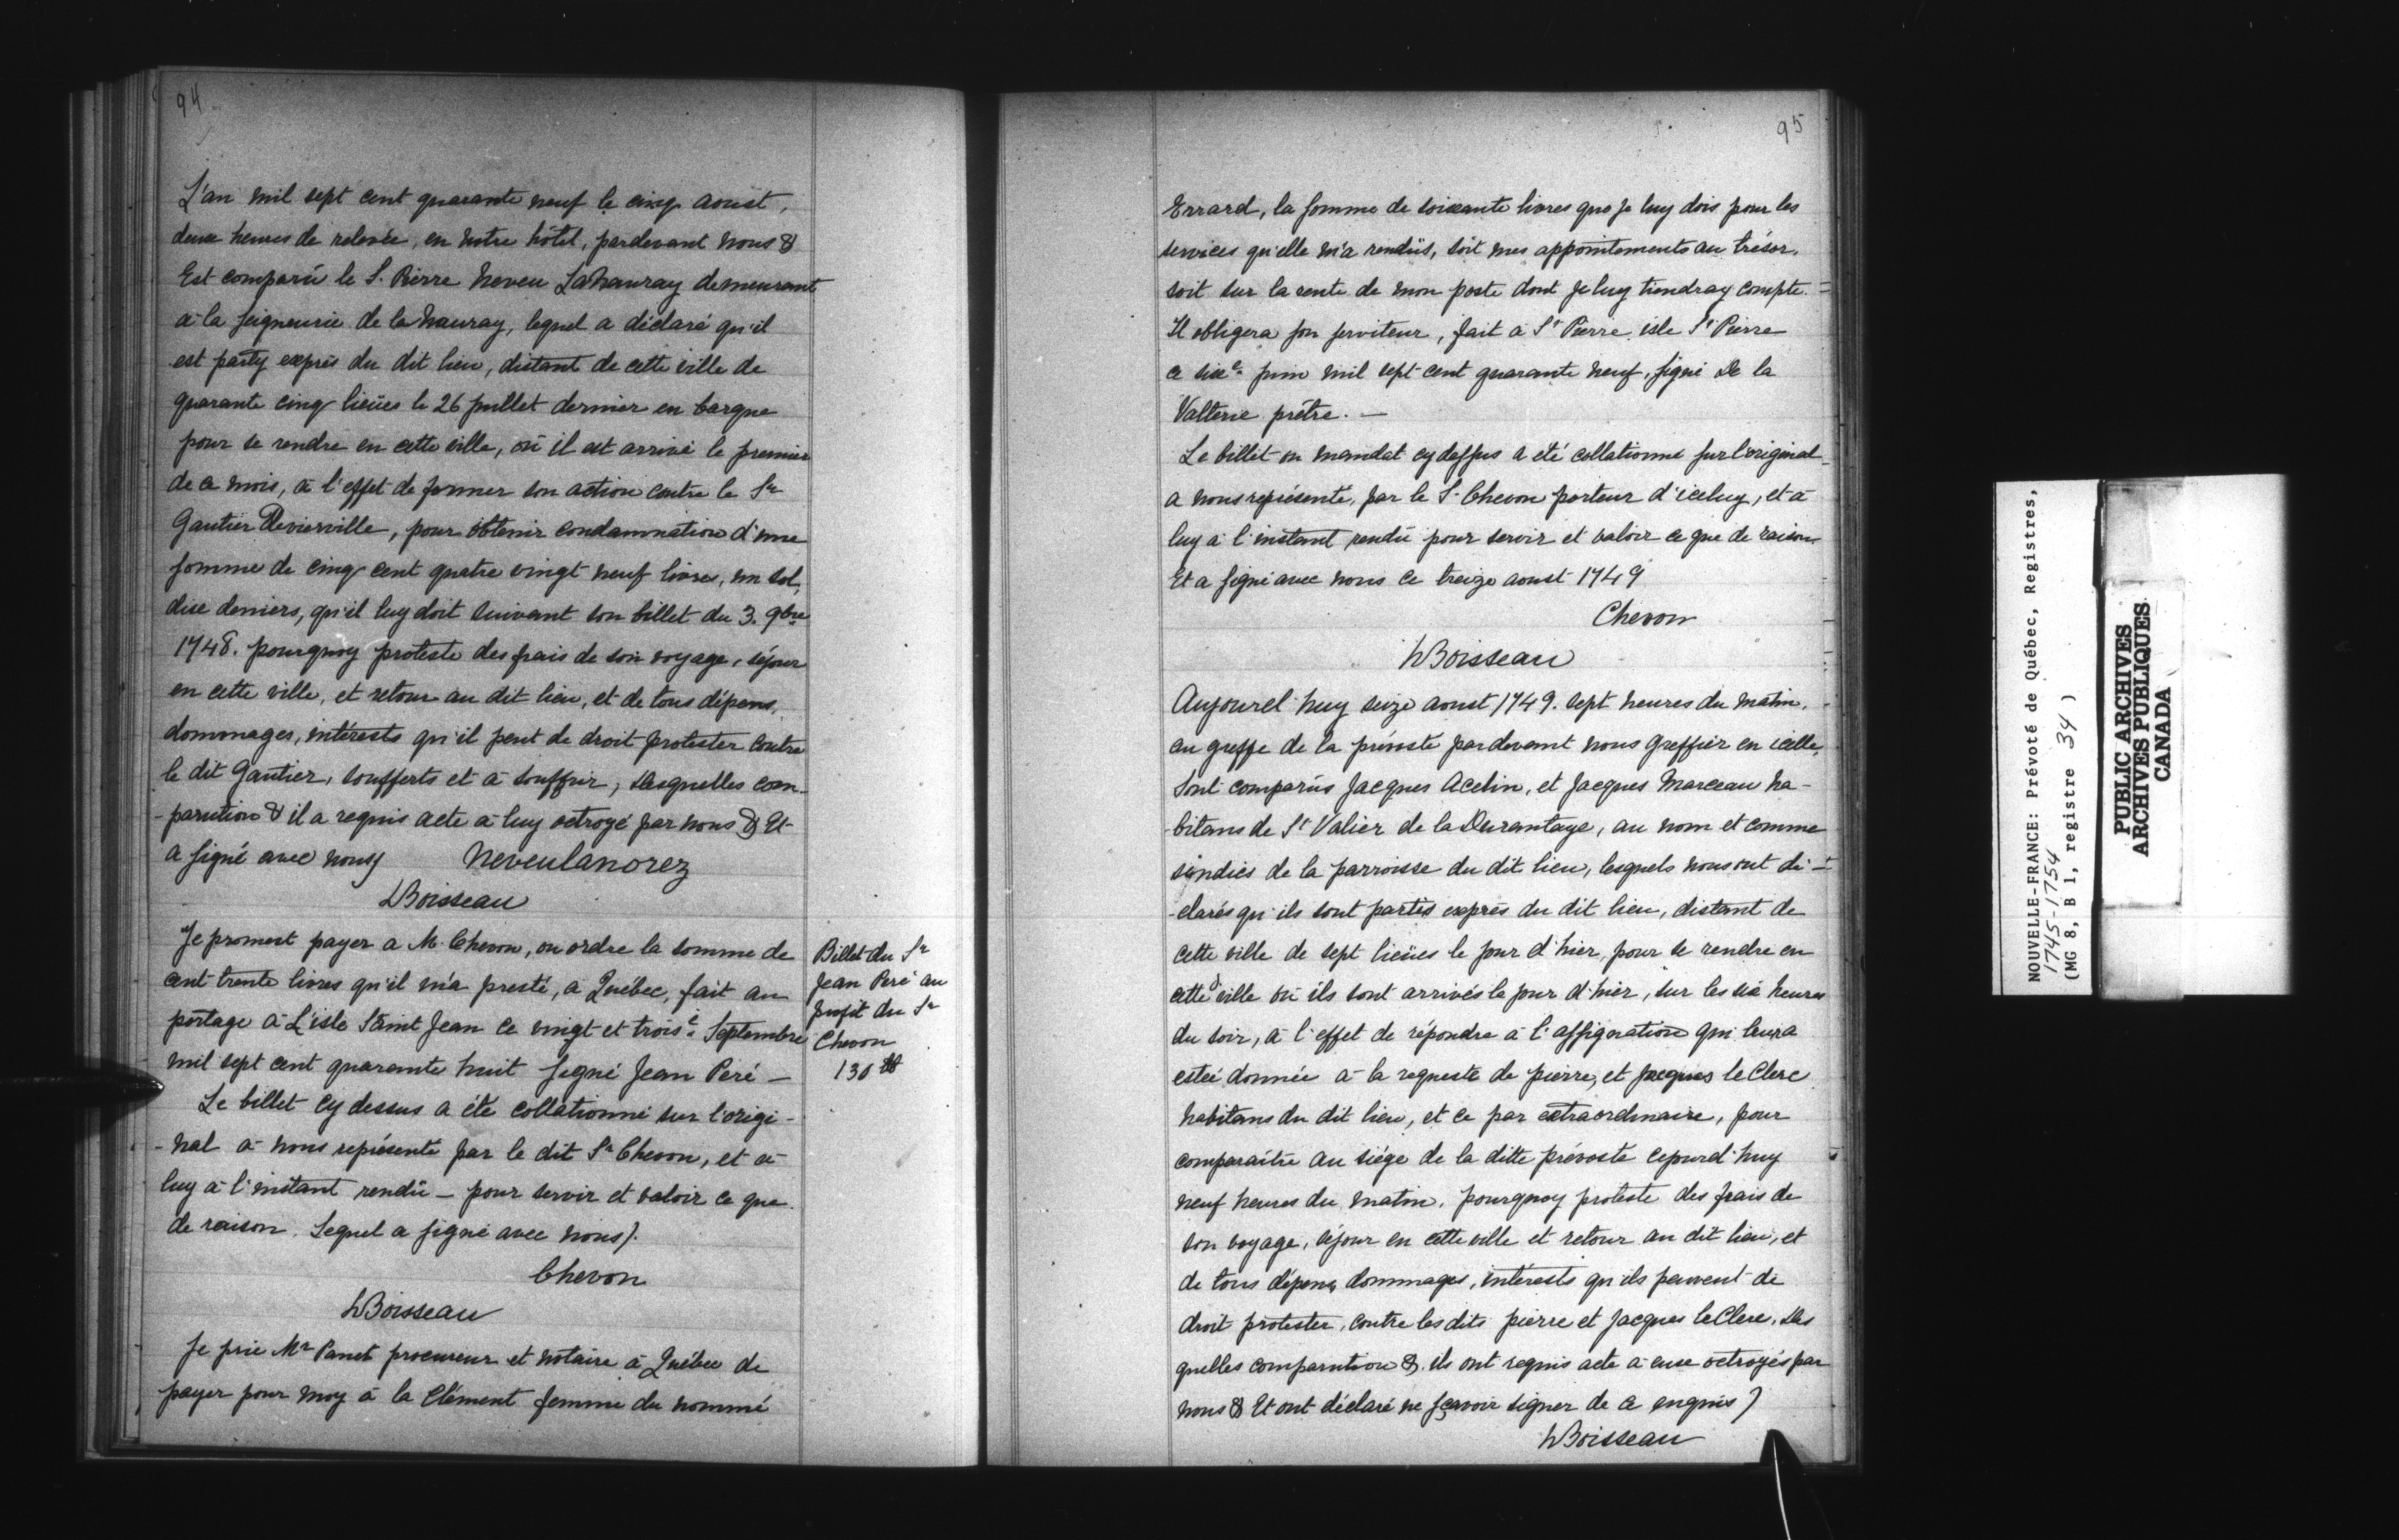 94
L'an mil sept cent quarante neuf le cinq aoust,
deux heures de relevée, en notre hôtel, pardevant nous &
Est comparü le S. Pierre Neveu LaNauray demeurant
à la seigneurie de la Nauray, lequel a déclaré qu'il
est party exprès du dit lieu, distant de cette ville de
quarante cinq lieües le 26 juillet dernier en barque
pour se rendre en cette ville, où il est arrivé le premier
de ce mois, à l'effet de former son action contre le Sr
Gautier Devierville, pour obtenir condamnation d'une
somme de cinq cent quatre vingt neuf livres, un sol,
dixe deniers, qu'il luy doit suivant son billet du 3. 9bre
1748. pourquoy proteste des frais de son voyage, séjour
en cette ville, et retour au dit lieu, et de tous dépens,
dommages, intérests qu'il peut de droit protester contre
le dit Gautier, soufferts et à souffrir, desquelles com-
-parution & il a requis acte à luy octroyé par nous & Et
a signé avec nous) Neveulanorez
hBoisseau
Je promest payer a M. Chevon, ou ordre la somme de
cent trente livres qu'il m'a presté, a Québec, fait au
portage à L'isle Saint Jean ce vingt et troisè. Septembre
mil sept cent quarante huit signé Jean Peré —
Billet du Sr
Jean Peré au
profit du Sr
Chevon
130 tt
Le billet cy dessus a été collationné sur l'origi-
-nal à nous représenté par le dit Sr Chevon, et à
luy à l'instant rendü — pour servir et valoir ce que
de raison. Lequel a signé avec nous).
Chevon
hBoisseau
Je prie Mr Panet procureur et notaire à Québec de
payer pour moy à la Clément femme du nommé
95
Errard, la somme de soixante livres que je luy dois pour les
services qu'elle m'a rendüs, soit mes appointements au trésor,
soit sur la rente de mon poste dont je luy tiendray compte. =
Il obligera son serviteur, fait à St Pierre isle St Pierre
ce sixe. juin mil sept cent quarante neuf, signé De la
Valterie prêtre. —
Le billet ou mandat cy dessus a été collationné sur l'original
a nous représenté, par le S. Chevon porteur d'iceluy, et à
luy à l'instant rendü pour servir et valoir ce que de raison
Et a signé avec nous ce treize aoust 1749
Chevon
hBoisseau
Aujourd'huy seize aoust 1749. sept heures du matin,
au greffe de la prévosté pardevant nous greffier en icelle,
Sont comparüs Jacques Acelin, et Jacques Marceau ha-
-bitans de St Valier de la Durantaye, au nom et comme
sindics de la parroisse du dit lieu, lesquels nous ont dé-
-clarés qu'ils sont partis exprès du dit lieu, distant de
cette ville de sept lieües le jour d'hier, pour se rendre en
cette ville où ils sont arrivés le jour d'hier, sur les six heures
du soir, à l'effet de répondre à l'assignation qui leura
estée donnée à la requeste de pierre, et Jacques le Clerc
habitans du dit lieu, et ce par extraordinaire, pour
comparaître au siége de la ditte prévosté cejourd'huy
neuf heures du matin, pourquoy proteste des frais de
son voyage, séjour en cette ville et retour au dit lieu, et
de tous dépens, dommages, intérests qu'ils peuvent de
droit protester, contre les dits pierre et Jacques le Clerc, des
quelles comparution &. ils ont requis acte à euxe octroyés par
nous & Et ont déclaré ne sçavoir signer de ce enquis)
hBoisseau
NOUVELLE-FRANCE: Prévoté de Québec, Registres,
1745-1754
(MG 8, B 1, registre 34 )
PUBLIC ARCHIVES
ARCHIVES PUBLIQUES
CANADA